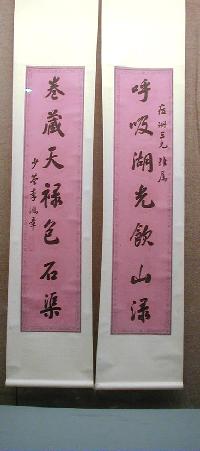 呼吸湖光飲山淥
洲三兄雅屬
卷藏天祿包石渠
少荃李鴻章